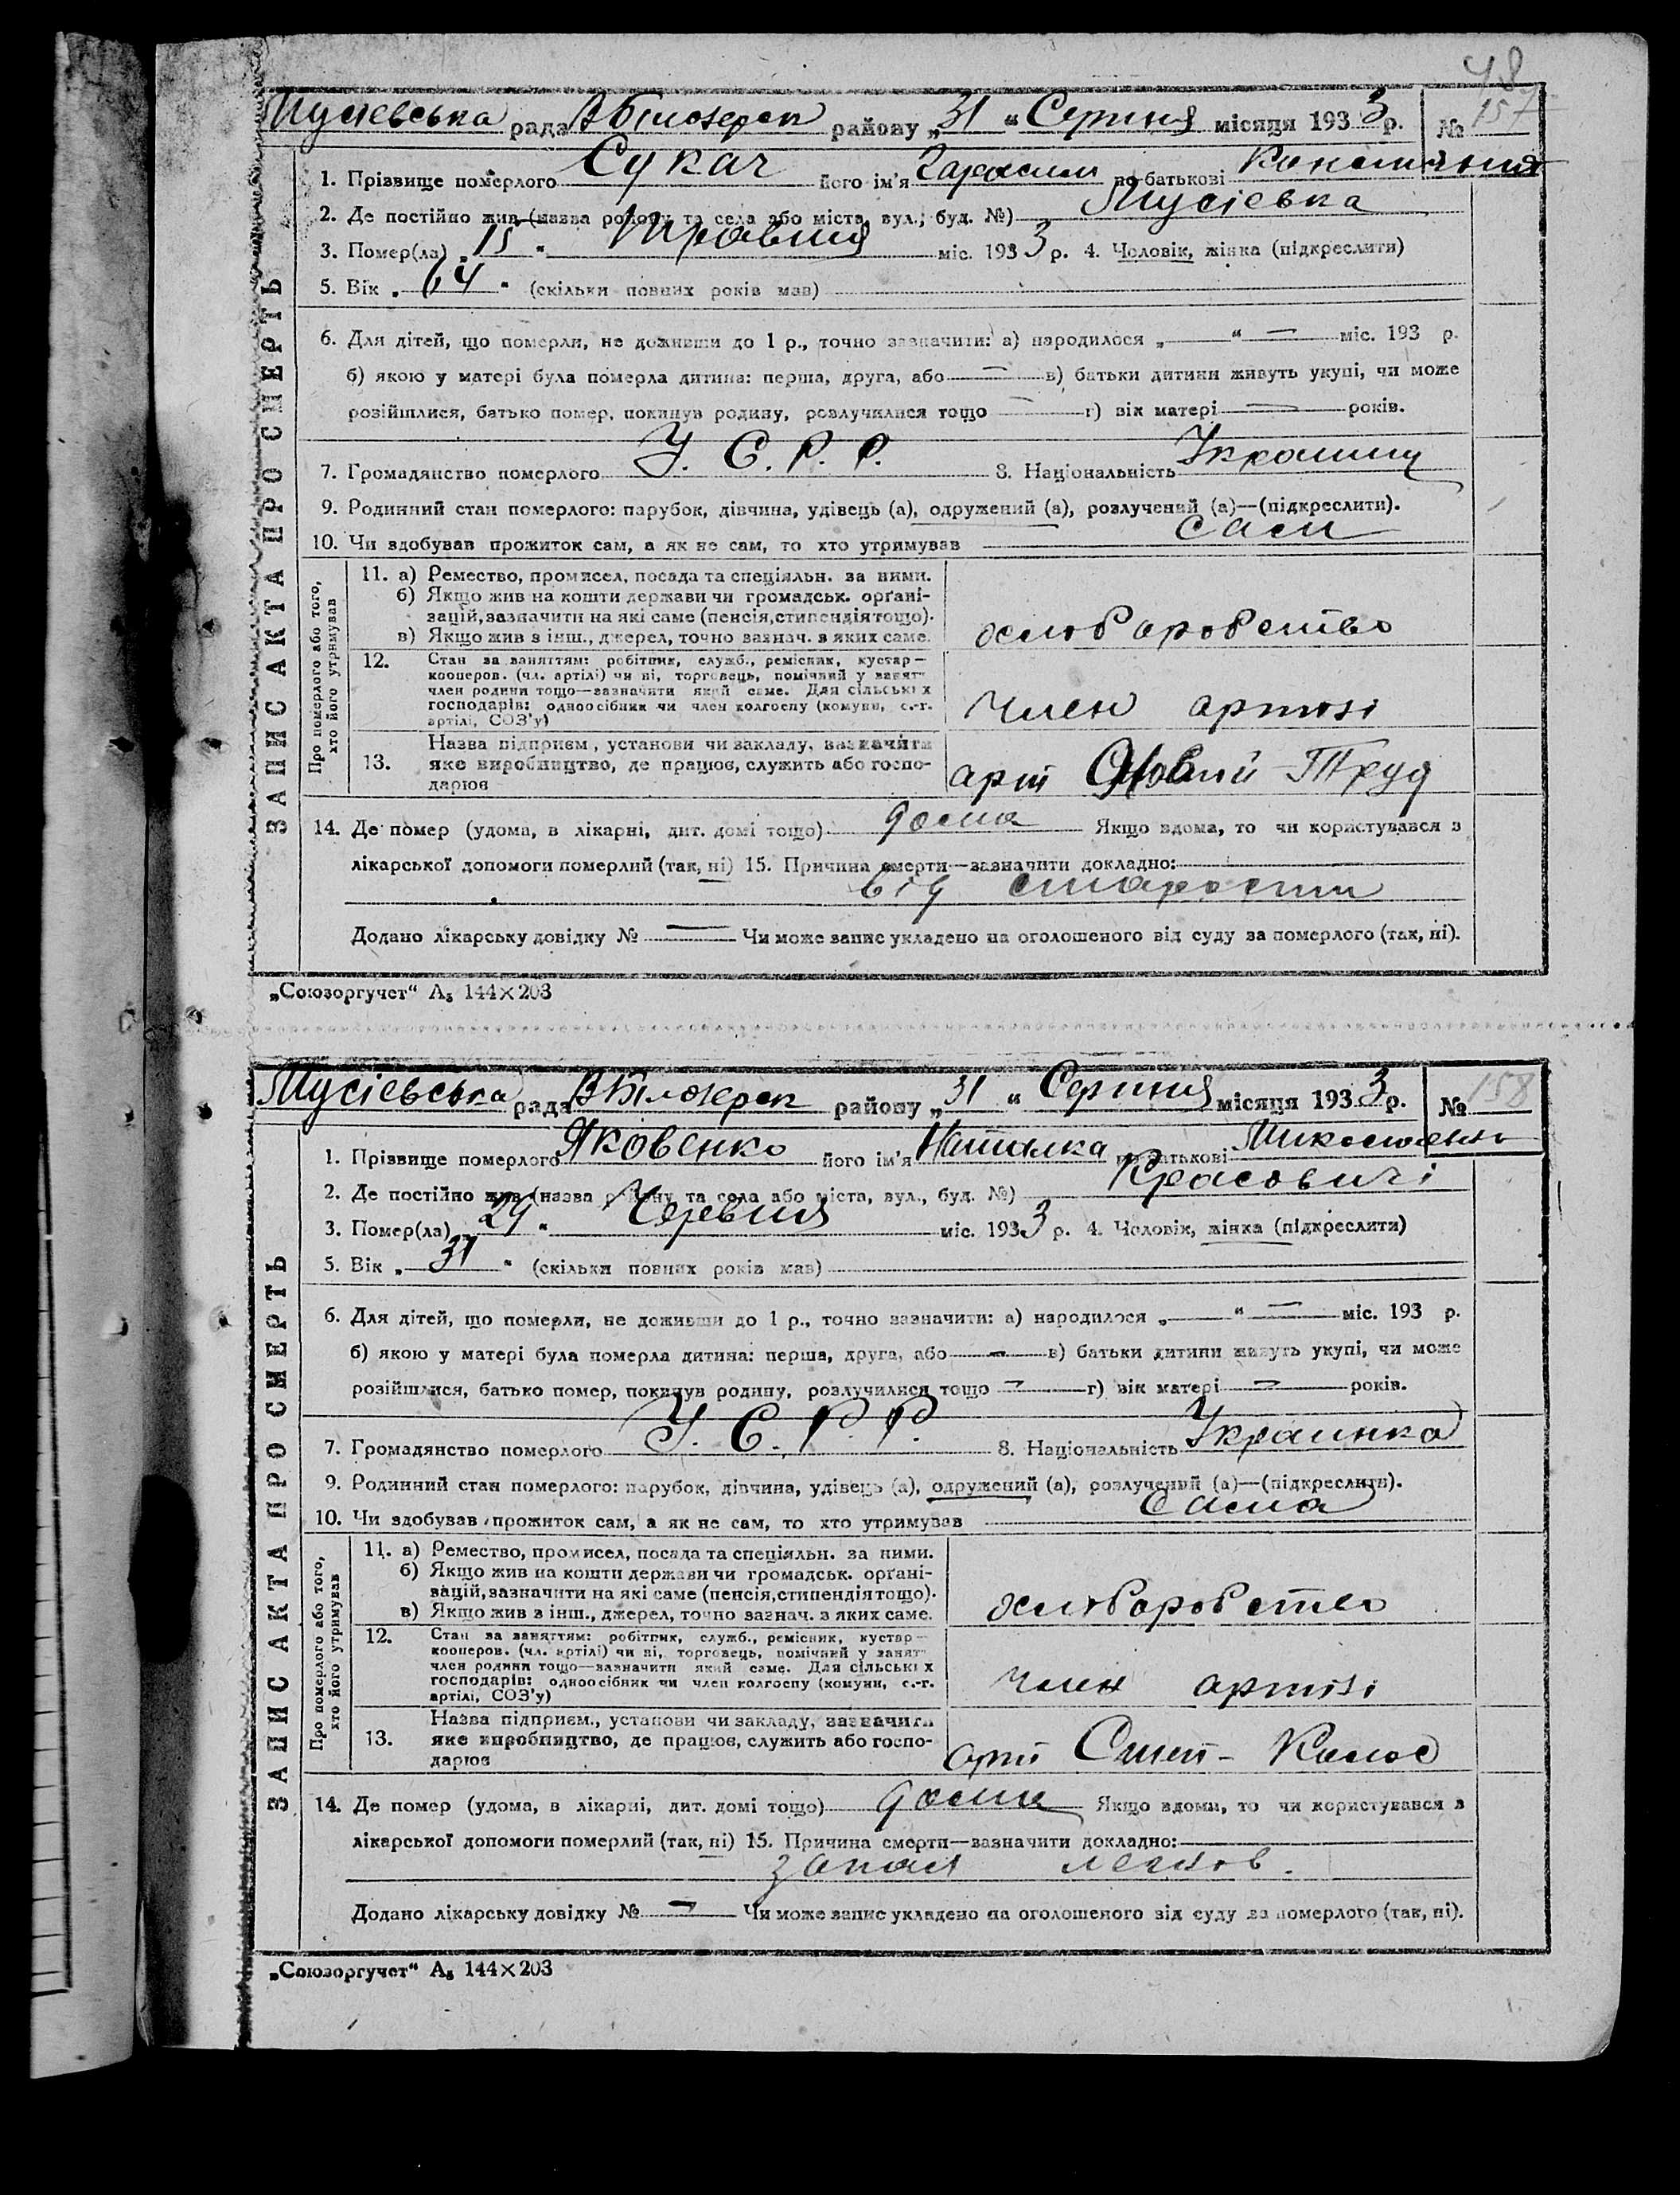 48
Мусіевська рада В Білозерсп району „31 “ Серпня місяця 1933 р. № 157
1. Прізвище померлого Сукач його ім'я Гарасим по батькові
2. Де постійно жив (назва району та села або міста, вул., буд. №) Мусіевка
3. Помер(ла) „15 “ Травня міс. 1933 р. 4. Чоловік, жінка (підкреслити)
5. Вік „ 64 “ (скільки повних років мав)
6. Для дітей, що померли, не доживши до 1 р., точно зазначити: а) народилося „ “ — міс. 193 р.
б) якою у матері була померла дитина: перша, друга, або — в) батьки дитини живуть укупі, чи може
розійшлися, батько помер, покинув родину, розлучилися тощо — г) вік матері — років.
7. Громадянство померлого У. С. Р. Р. 8. Національність Украинец
9. Родинний стан померлого: парубок, дівчина, удівець (а), одружений (а), розлучений (а)—(підкреслити).
10. Чи здобував прожиток сам, а як не сам, то хто утримував сам
ЗАПИС АКТА ПРО СМЕРТЬ
Про померлого або того, хто його утримував
11. а) Ремество, промисел, посада та спеціяльн. за ними.
б) Якщо жив на кошти держави чи громадськ. орґані-
зацій, зазначити на які саме (пенсія, стипендія тощо).
в) Якщо жив з інш., джерел, точно зазнач. з яких саме.
хлюборобство
12. Стан за заняттям: робітник, служб., ремісник, кустар—
кооперов. (чл. артілі) чи ні, торговець, помічний у занят-
член родини тощо—зазначити який саме. Для сільських
господарів: одноосібник чи член колгоспу (комуни, с.-г.
артілі, СОЗ'у)
член артілі
Назва підприєм., установи чи закладу, зазначити
13. яке виробництво, де працює, служить або госпо-
дарює
арт Новий Труд
14. Де помер (удома, в лікарні, дит. домі тощо) дома Якщо вдома, то чи користувався з
лікарської допомоги померлий (так, ні) 15. Причина смерти—зазначити докладно:
від старости
Додано лікарську довідку № — Чи може запис укладено на оголошеного від суду за померлого (так, ні).
„Союзоргучет“ А₅ 144×203
Мусіевська рада В Білозерсп району „31 “ Серпня місяця 1933 р. № 158
1. Прізвище померлого Яковенко його ім'я Наталка по батькові
2. Де постійно жив (назва району та села або міста, вул., буд. №)
3. Помер(ла) 24 “ Червня міс. 1933 р. 4. Чоловік, жінка (підкреслити)
5. Вік „ 31 “ (скільки повних років мав)
6. Для дітей, що померли, не доживши до 1 р., точно зазначити: а) народилося „ “ — міс. 193 р.
б) якою у матері була померла дитина: перша, друга, або — в) батьки дитини живуть укупі, чи може
розійшлися, батько помер, покинув родину, розлучилися тощо — г) вік матері — років.
7. Громадянство померлого У. С. Р. Р. 8. Національність Украинка
9. Родинний стан померлого: парубок, дівчина, удівець (а), одружений (а), розлучений (а)—(підкреслити).
10. Чи здобував прожиток сам, а як не сам, то хто утримував сама
ЗАПИС АКТА ПРО СМЕРТЬ
Про померлого або того, хто його утримував
11. а) Ремество, промисел, посада та спеціяльн. за ними.
б) Якщо жив на кошти держави чи громадськ. орґані-
зацій, зазначити на які саме (пенсія, стипендія тощо).
в) Якщо жив з інш., джерел, точно зазнач. з яких саме.
хлюборобство
12. Стан за заняттям: робітник, служб., ремісник, кустар—
кооперов. (чл. артілі) чи ні, торговець, помічний у занят-
член родини тощо—зазначити який саме. Для сільських
господарів: одноосібник чи член колгоспу (комуни, с.-г.
артілі, СОЗ'у)
член артілі
Назва підприєм., установи чи закладу, зазначити
13. яке виробництво, де працює, служить або госпо-
дарює
арт Колос
14. Де помер (удома, в лікарні, дит. домі тощо) дома Якщо вдома, то чи користувався з
лікарської допомоги померлий (так, ні) 15. Причина смерти—зазначити докладно:
запал легков.
Додано лікарську довідку № — Чи може запис укладено на оголошеного від суду за померлого (так, ні).
„Союзоргучет“ А₅ 144×203